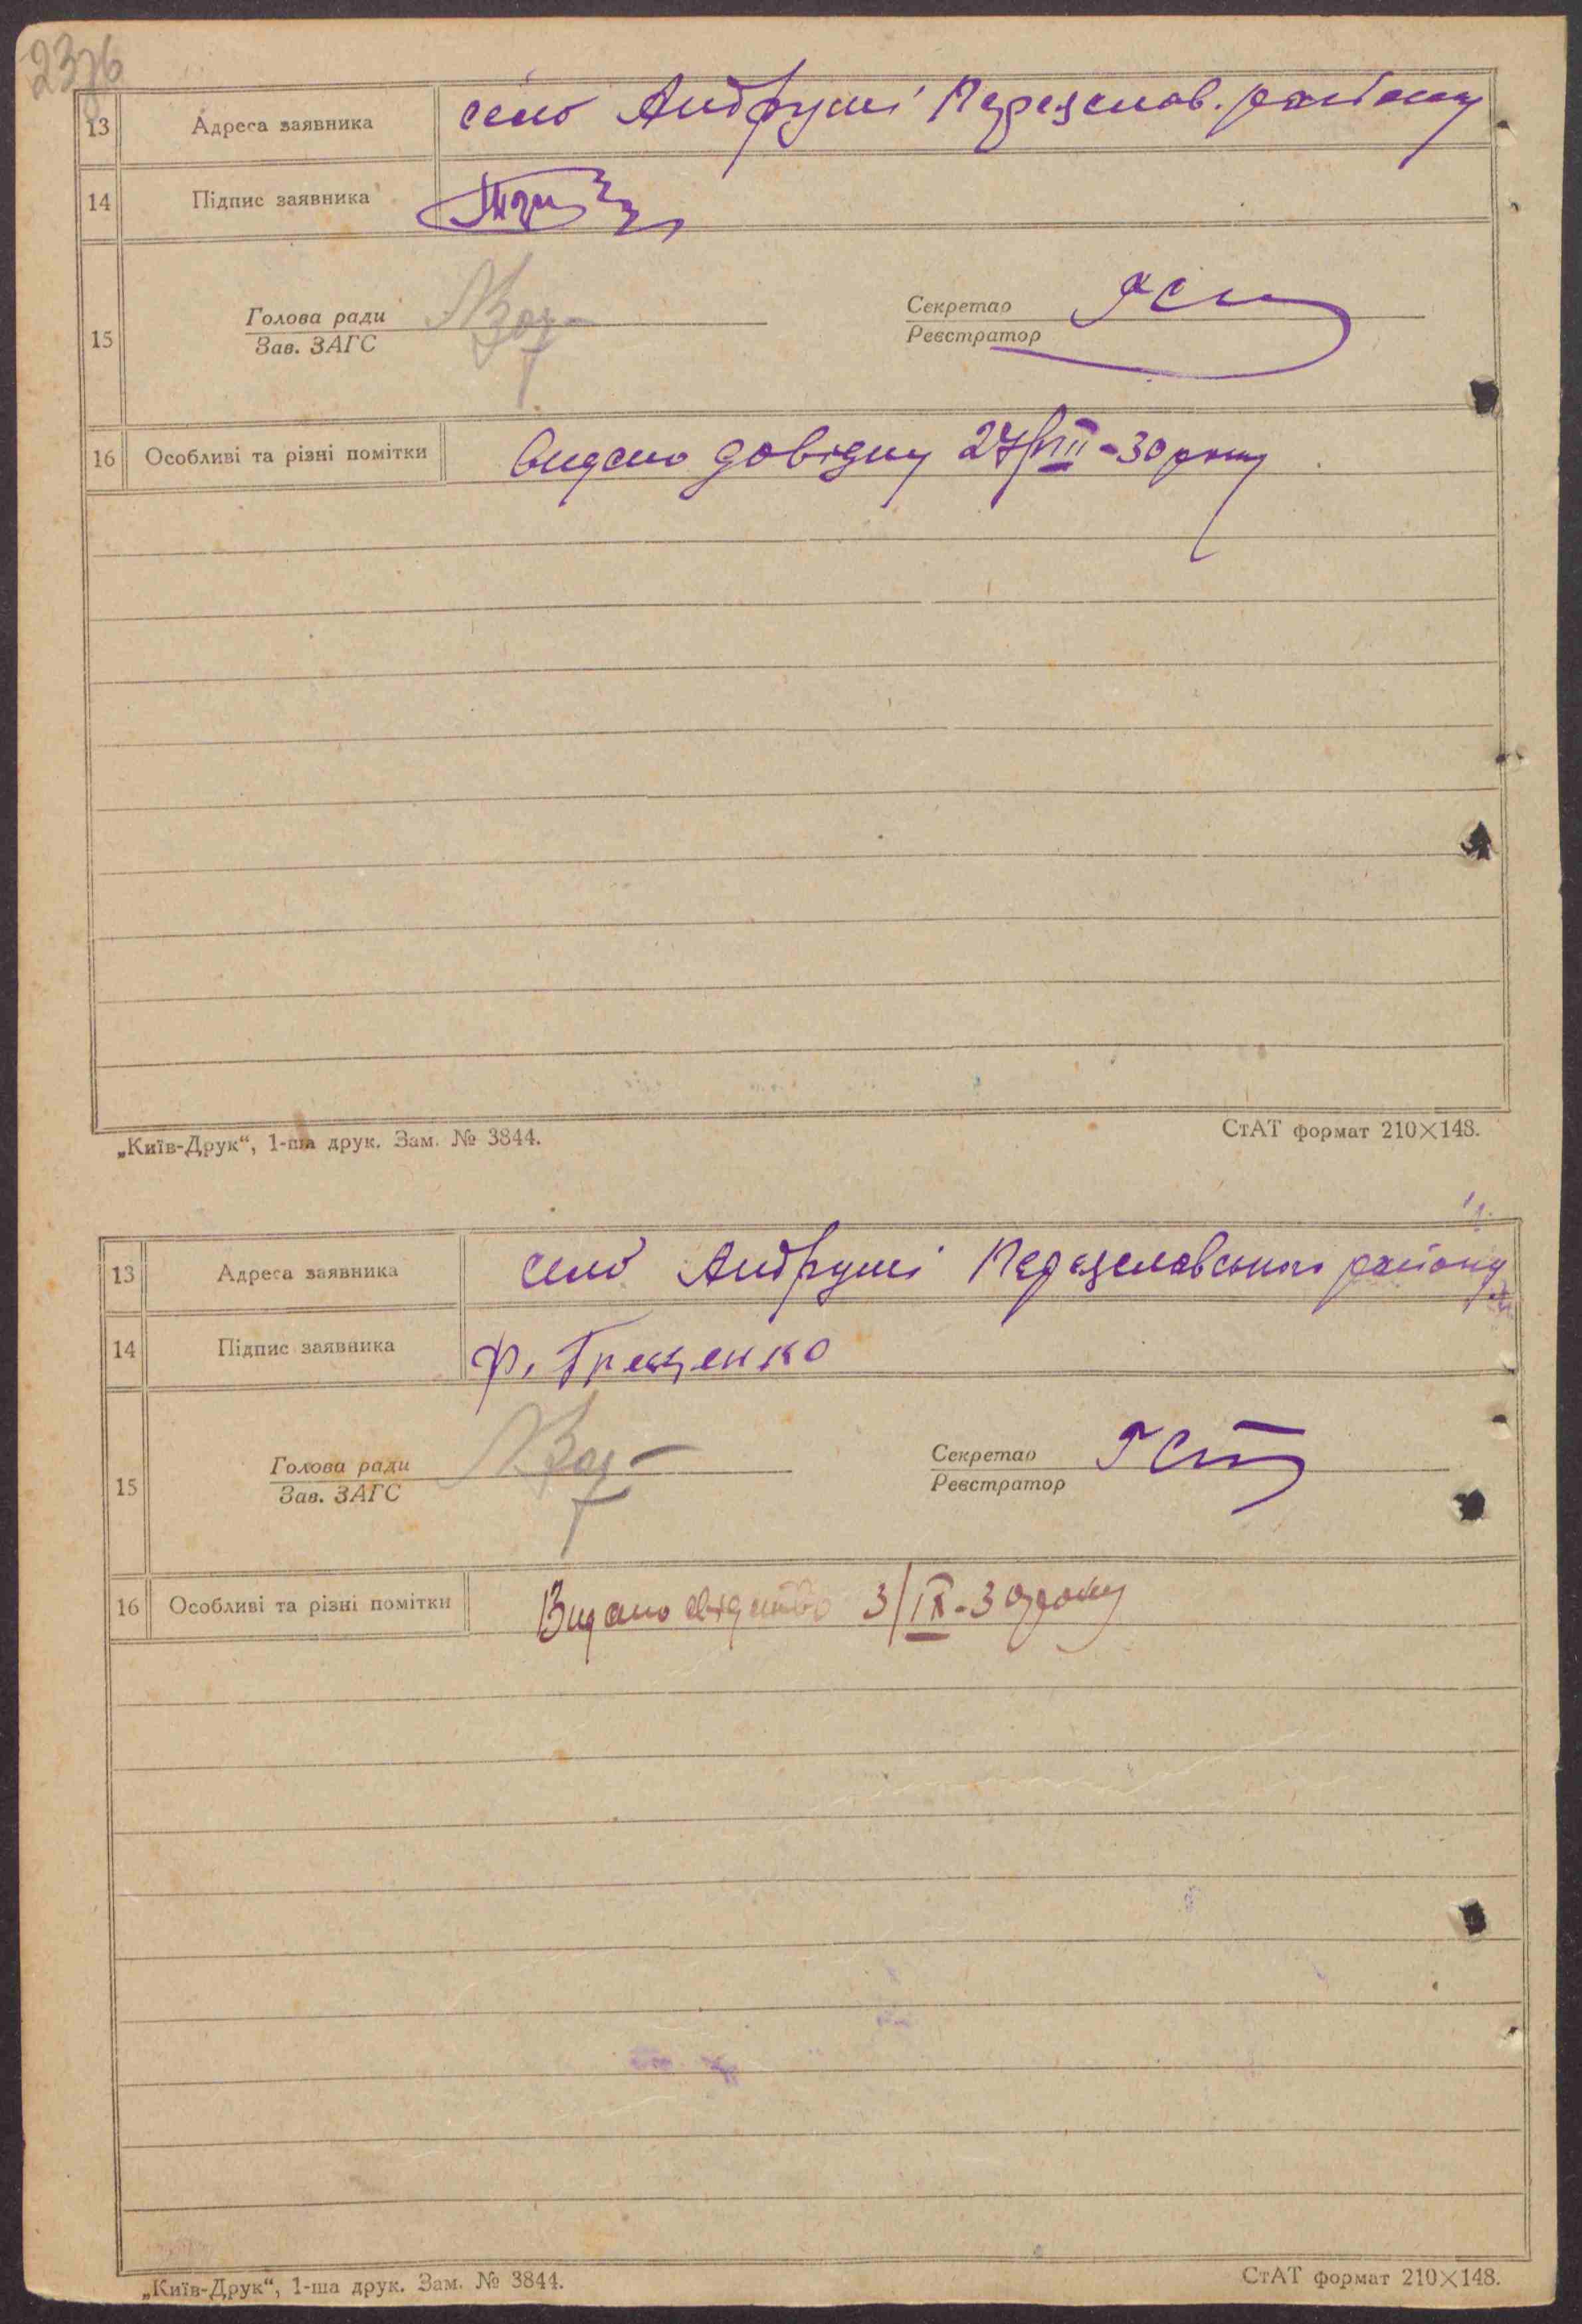 13 Адреса заявника село Андруші Переяслав. району
14 Підпис заявника
15 Голова ради
Зав. ЗАГС
Секретар
Реєстратор
16 Особливі та різні помітки Видано довідку 27/VIII-30 року
„Київ-Друк“, 1-ша друк. Зам. № 3844. СтАТ формат 210×148.
13 Адреса заявника село Андруші Переяславського району
14 Підпис заявника Ф. Грещенко
15 Голова ради
Зав. ЗАГС
Секретар
Реєстратор
16 Особливі та різні помітки Видано свідоцтво 3/IX-30 року
„Київ-Друк“, 1-ша друк. Зам. № 3844. СтАТ формат 210×148.